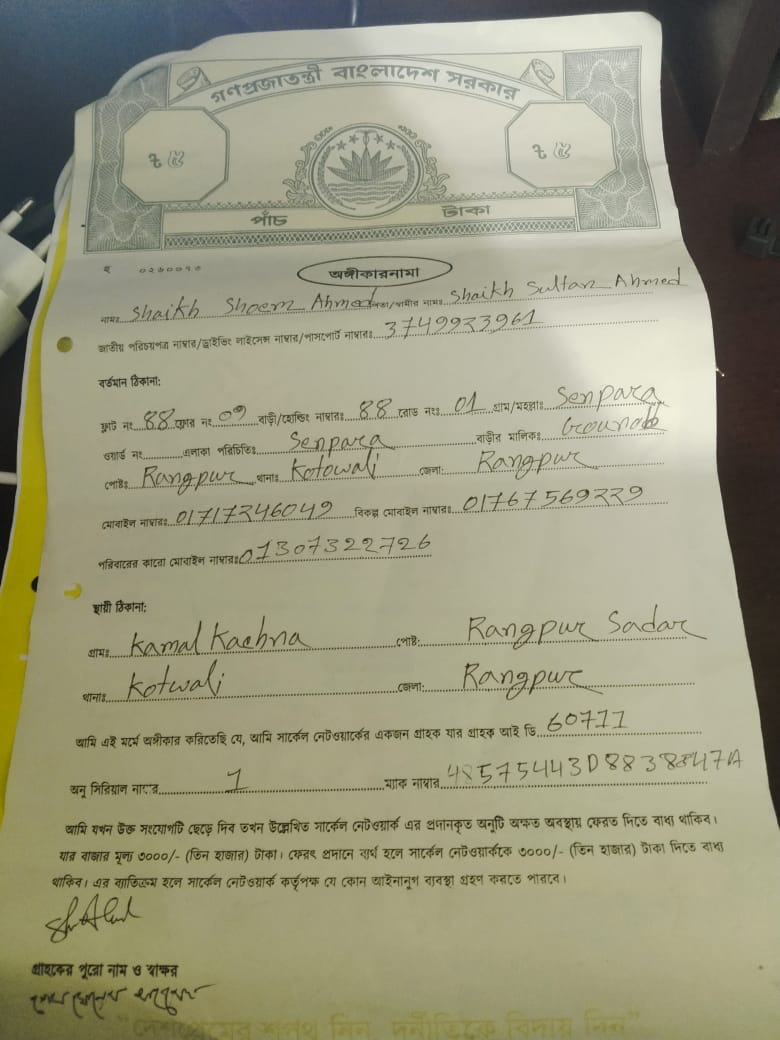 গণপ্রজাতন্ত্রী বাংলাদেশ সরকার
৳ ৫ ৳ ৫
পাঁচ টাকা
অঙ্গীকারনামা
নামঃ Shaikh Shoem Ahmed পিতা/স্বামীর নামঃ Shaikh Sultan Ahmed
জাতীয় পরিচয়পত্র নাম্বার/ড্রাইভিং লাইসেন্স নাম্বার/পাসপোর্ট নাম্বারঃ 3749923961
বর্তমান ঠিকানা:
ফ্লাট নং 88 ফ্লোর নং 09 বাড়ী/হোল্ডিং নাম্বারঃ 88 রোড নংঃ 01 গ্রাম/মহল্লাঃ Senpara
ওয়ার্ড নং এলাকা পরিচিতিঃ Senpara বাড়ীর মালিকঃ
পোষ্টঃ Rangpur থানাঃ Kotowali জেলা: Rangpur
মোবাইল নাম্বারঃ 01717246049 বিকল্প মোবাইল নাম্বারঃ 01767569229
পরিবারের কারো মোবাইল নাম্বারঃ 01307322726
স্থায়ী ঠিকানা:
গ্রামঃ Kamal Kachna পোষ্ট: Rangpur Sadar
থানাঃ Kotwali জেলা: Rangpur
আমি এই মর্মে অঙ্গীকার করিতেছি যে, আমি সার্কেল নেটওয়ার্কের একজন গ্রাহক যার গ্রাহক আই ডি 60711
অনু সিরিয়াল নাম্বার 1 ম্যাক নাম্বার
আমি যখন উক্ত সংযোগটি ছেড়ে দিব তখন উল্লেখিত সার্কেল নেটওয়ার্ক এর প্রদানকৃত অনুটি অক্ষত অবস্থায় ফেরত দিতে বাধ্য থাকিব।
যার বাজার মূল্য ৩০০০/- (তিন হাজার) টাকা। ফেরৎ প্রদানে ব্যর্থ হলে সার্কেল নেটওয়ার্ককে ৩০০০/- (তিন হাজার) টাকা দিতে বাধ্য
থাকিব। এর ব্যতিক্রম হলে সার্কেল নেটওয়ার্ক কর্তৃপক্ষ যে কোন আইনানুগ ব্যবস্থা গ্রহণ করতে পারবে।
গ্রাহকের পুরো নাম ও স্বাক্ষর
"দেশপ্রেমের শপথ নিন, দুর্নীতিকে বিদায় দিন"